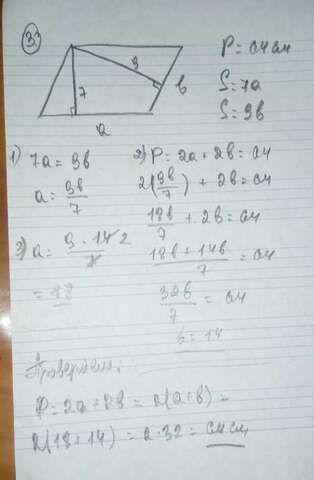 33
P = 64 см
7
9
b
S = 7a
S = 9b
a
1) 7a = 9b
a = 9b/7
2) P = 2a + 2b = 64
2(9b/7) + 2b = 64
18b/7 + 2b = 64
18b + 14b/7 = 64
32b/7 = 64
b = 14
3) a = 9 · 14 2/7
= 18
Проверяем:
P = 2a + 2b = 2(a + b) =
2(18 + 14) = 2 · 32 = 64 см